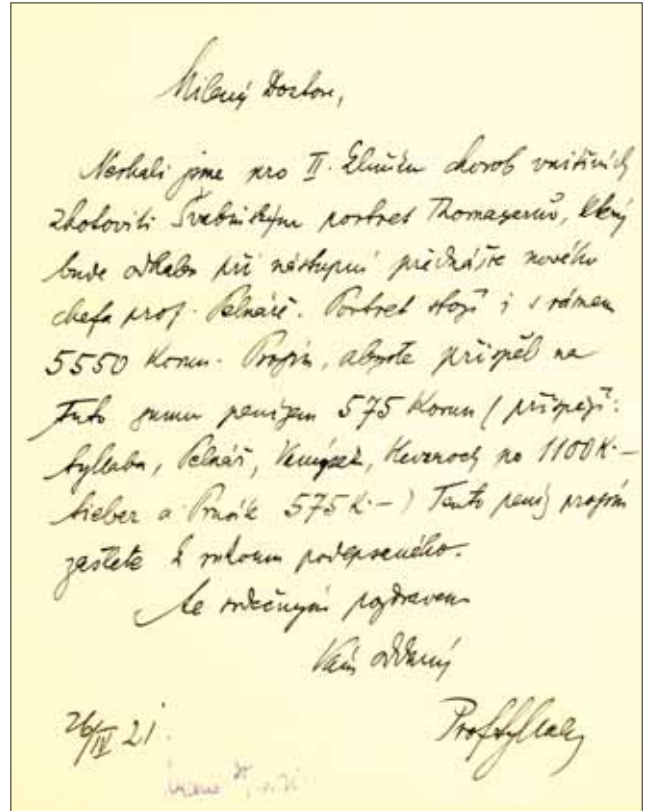 Milený Doktore,
Nechali jsme pro II. kliniku chorob vnitřních
zhotoviti Švabinským portret Thomayerův, který
bude odhalen při nástupní přednášce nového
chefa prof. Pelnáře. Portret stojí i s rámem
5550 Korun. Prosím, abyste přispěl na
tuto sumu penízem 575 Korun (přispějí:
Syllaba, Pelnář, Vanýsek, Heveroch po 1100 K.–
Sieber a Prusík 575 K.–) Tento peníz prosím
zašlete k rukoum podepsaného.
Se srdečným pozdravem
Vám oddaný
26/IV 21. Prof Syllaba